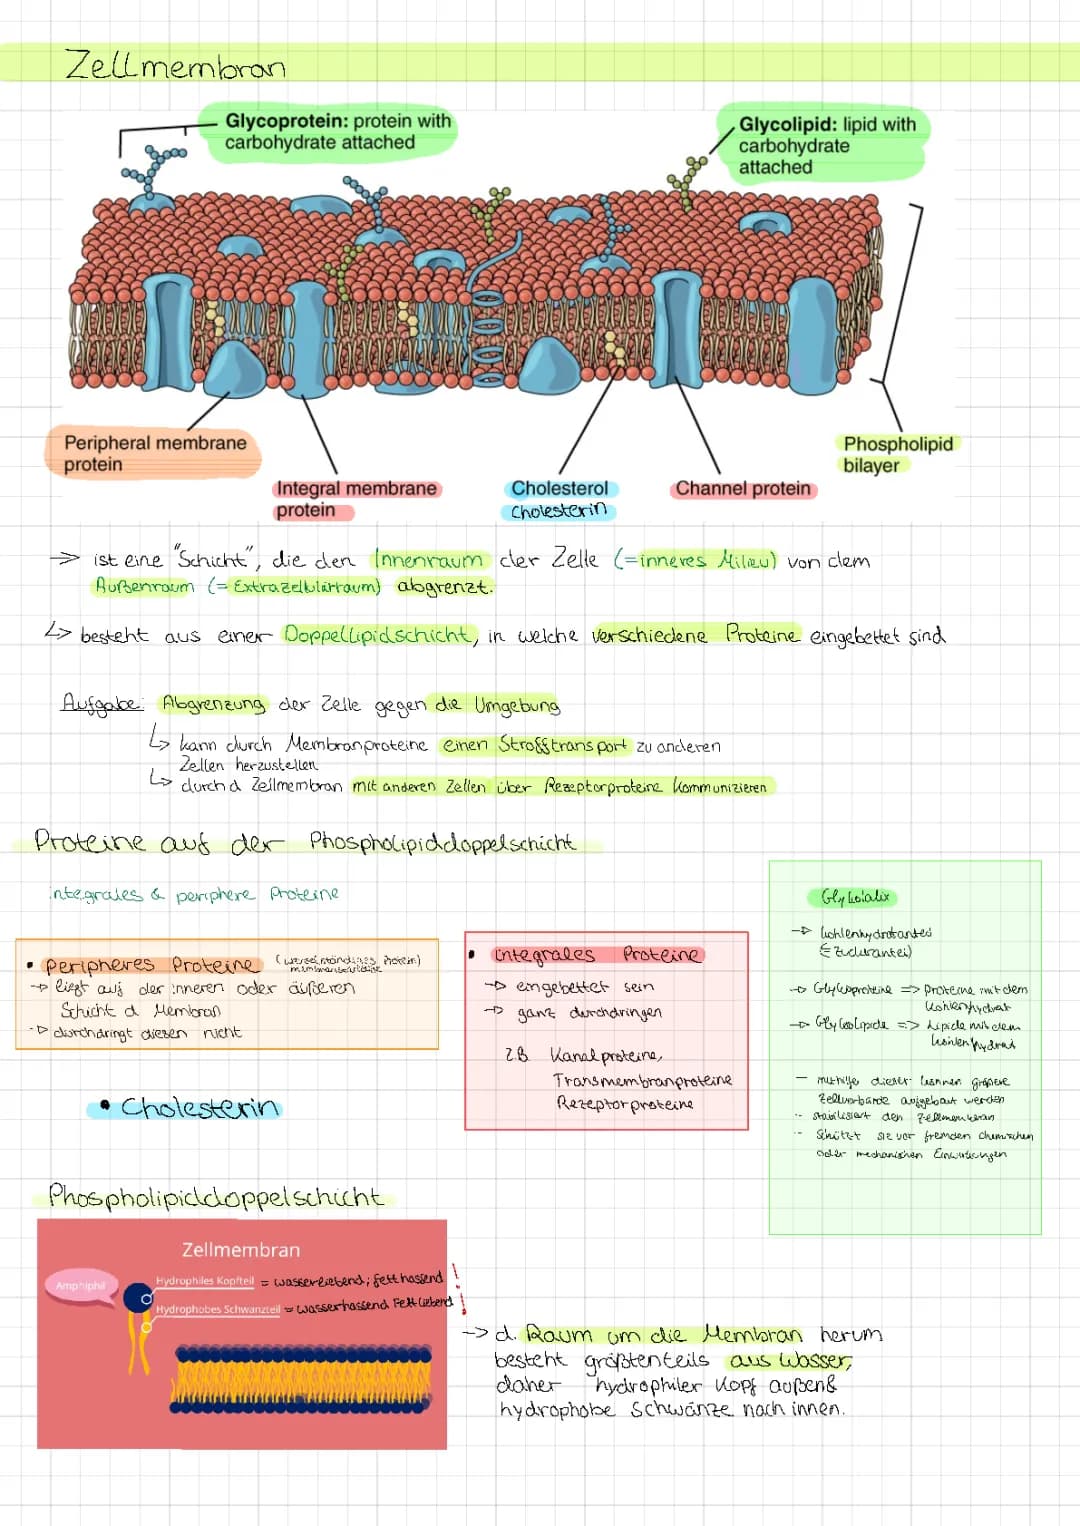 Zellmembran
Glycoprotein: protein with
carbohydrate attached
Glycolipid: lipid with
carbohydrate
attached
Peripheral membrane
protein
Integral membrane
protein
Cholesterol
Cholesterin
Channel protein
Phospholipid
bilayer
→ ist eine "Schicht", die den Innenraum der Zelle (=inneres Milieu) von dem
Außenraum (= Extrazellulärraum) abgrenzt.
↳ besteht aus einer Doppellipidschicht, in welche verschiedene Proteine eingebettet sind
Aufgabe: Abgrenzung der Zelle gegen die Umgebung
↳ kann durch Membranproteine einen Strofftransport zu anderen
Zellen herzustellen
↳ durch d Zellmembran mit anderen Zellen über Rezeptorproteine kommunizieren
Proteine auf der Phospholipiddoppelschicht
integrales & periphere Proteine
• peripheres Proteine
→ liegt auf der inneren oder äußeren
Schicht d Membran
→ durchdringt diesen nicht
• integrales Proteine
→ eingebettet sein
→ ganz durchdringen
z.B. Kanalproteine,
Transmembranproteine
Rezeptorproteine
Glykolalix
→ kohlenhydratanteil
(= Zuckeranteil)
→ Glykoproteine => Proteine mit dem
Kohlenhydrat
→ Glykolipide => Lipide mit dem
kohlenhydrat
– mithilfe dieser können größere
Zellverbände aufgebaut werden
- stabilisiert den Zellmembran
- Schützt sie vor fremden chemischen
oder mechanischen Einwirkungen
• Cholesterin
Phospholipiddoppelschicht
Zellmembran
Amphiphil
Hydrophiles Kopfteil = wasserliebend; fetthassend !
Hydrophobes Schwanzteil = wasserhassend Fettliebend !
→ d. Raum um die Membran herum
besteht größtenteils aus Wasser,
daher hydrophiler Kopf außen &
hydrophobe Schwänze nach innen.